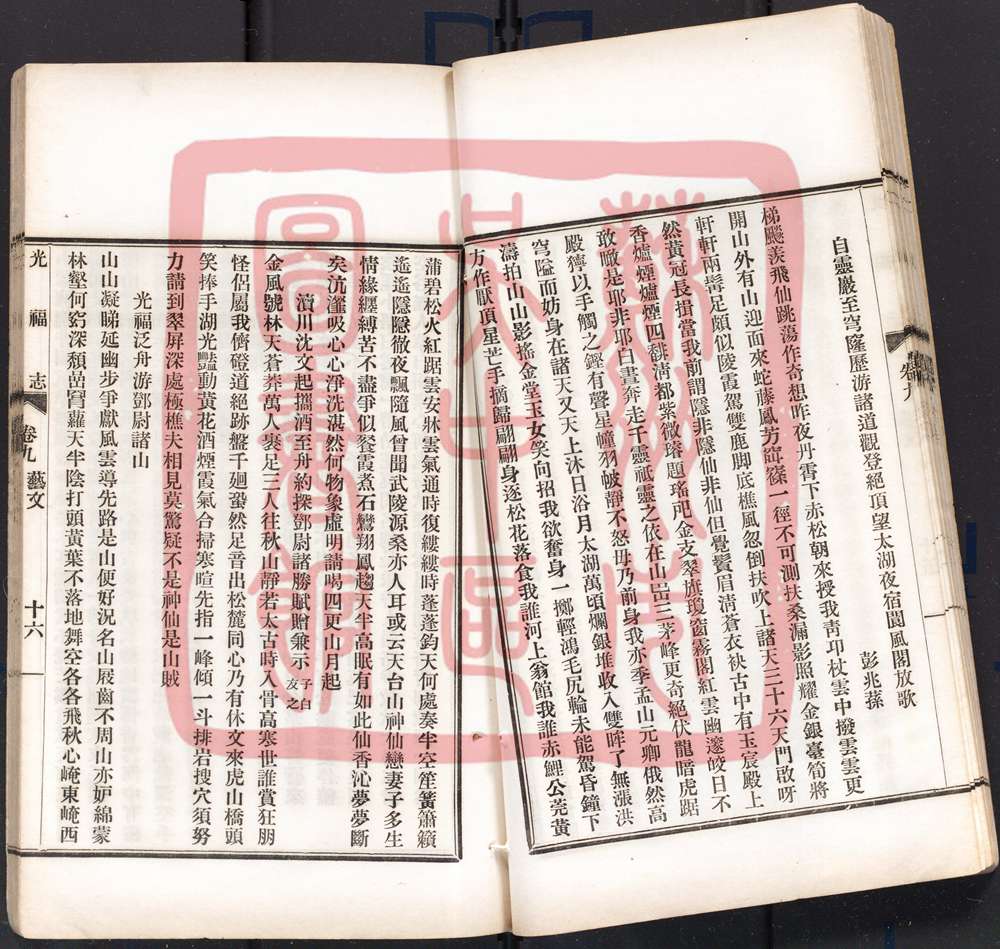 自靈巖至穹窿歷游諸道觀登絕頂望太湖夜宿閬風閣放歌
彭兆蓀
梯飈羨飛仙跳蕩作奇想昨夜丹霄下赤松朝來授我靑卭杖雲中撥雲雲更
開山外有山迎面來蛇藤鳳芳窅篠一徑不可測扶桑漏影照耀金銀臺筍將
軒軒兩髯足頗似陵霞駕雙鹿脚底樵風忽倒扶吹上諸天三十六天門啟呀
然黃冠長揖當我前謂隱非隱仙非仙但覺鬢眉淸蒼衣袂古中有玉宸殿上
香爐煙爐煙四繚淸都紫微璿題瑤戺金支翠旗瓊窗霧閣紅雲幽邃皎日不
敢瞰是耶非耶白晝奔走千靈祇靈之依在山嵓三茅峰更奇絕伏龍暗虎踞
殿獰以手觸之鏗有聲星幢羽帔靜不怒毋乃前身我亦季孟山元卿俄然高
穹隘而妨身在諸天又天上沐日浴月太湖萬頃爛銀堆收入雙眸了無漲洪
濤拍山山影搖金堂玉女笑向招我欲奮身一擲輕鴻毛尻輪未能駕昏鐘下
方作猒頂星芒手摘歸翩翩身逐松花落食我誰河上翁館我誰赤鯉公莞黃
蒲碧松火紅踞雲安牀雲氣通時復縷縷時蓬蓬鈞天何處奏半空笙簧簫籟
遙遙隱隱徹夜飄隨風曾聞武陵源桑亦人耳或云天台山神仙戀妻子多生
情緣纒縛苦不盡爭似餐霞煮石鸞翔鳳翥天半高眠有如此仙香沁夢夢斷
矣沆瀣吸心心淨洗湛然何物象虛明請喝四更山月起
瀆川沈文起攜酒至舟約探鄧尉諸勝賦贈兼示子白友之
金風號林天蒼莽萬人裹足三人往秋山靜若太古時入骨高寒世誰賞狂朋
怪侶屬我儕磴道絕跡盤千廻蛩然足音出松麓同心乃有休文來虎山橋頭
笑捧手湖光豔動黃花酒煙霞氣合掃寒暄先指一峰傾一斗排岩搜穴須努
力請到翠屏深處極樵夫相見莫驚疑不是神仙是山賊
光福泛舟游鄧尉諸山
山山凝睇延幽步爭獻風雲導先路是山便好況名山屐齒不周山亦妒綿蒙
林壑何窈深頹嵒窅蘿天半陰打頭黃葉不落地舞空各各飛秋心崦東崦西
光福志
卷九 藝文
十六